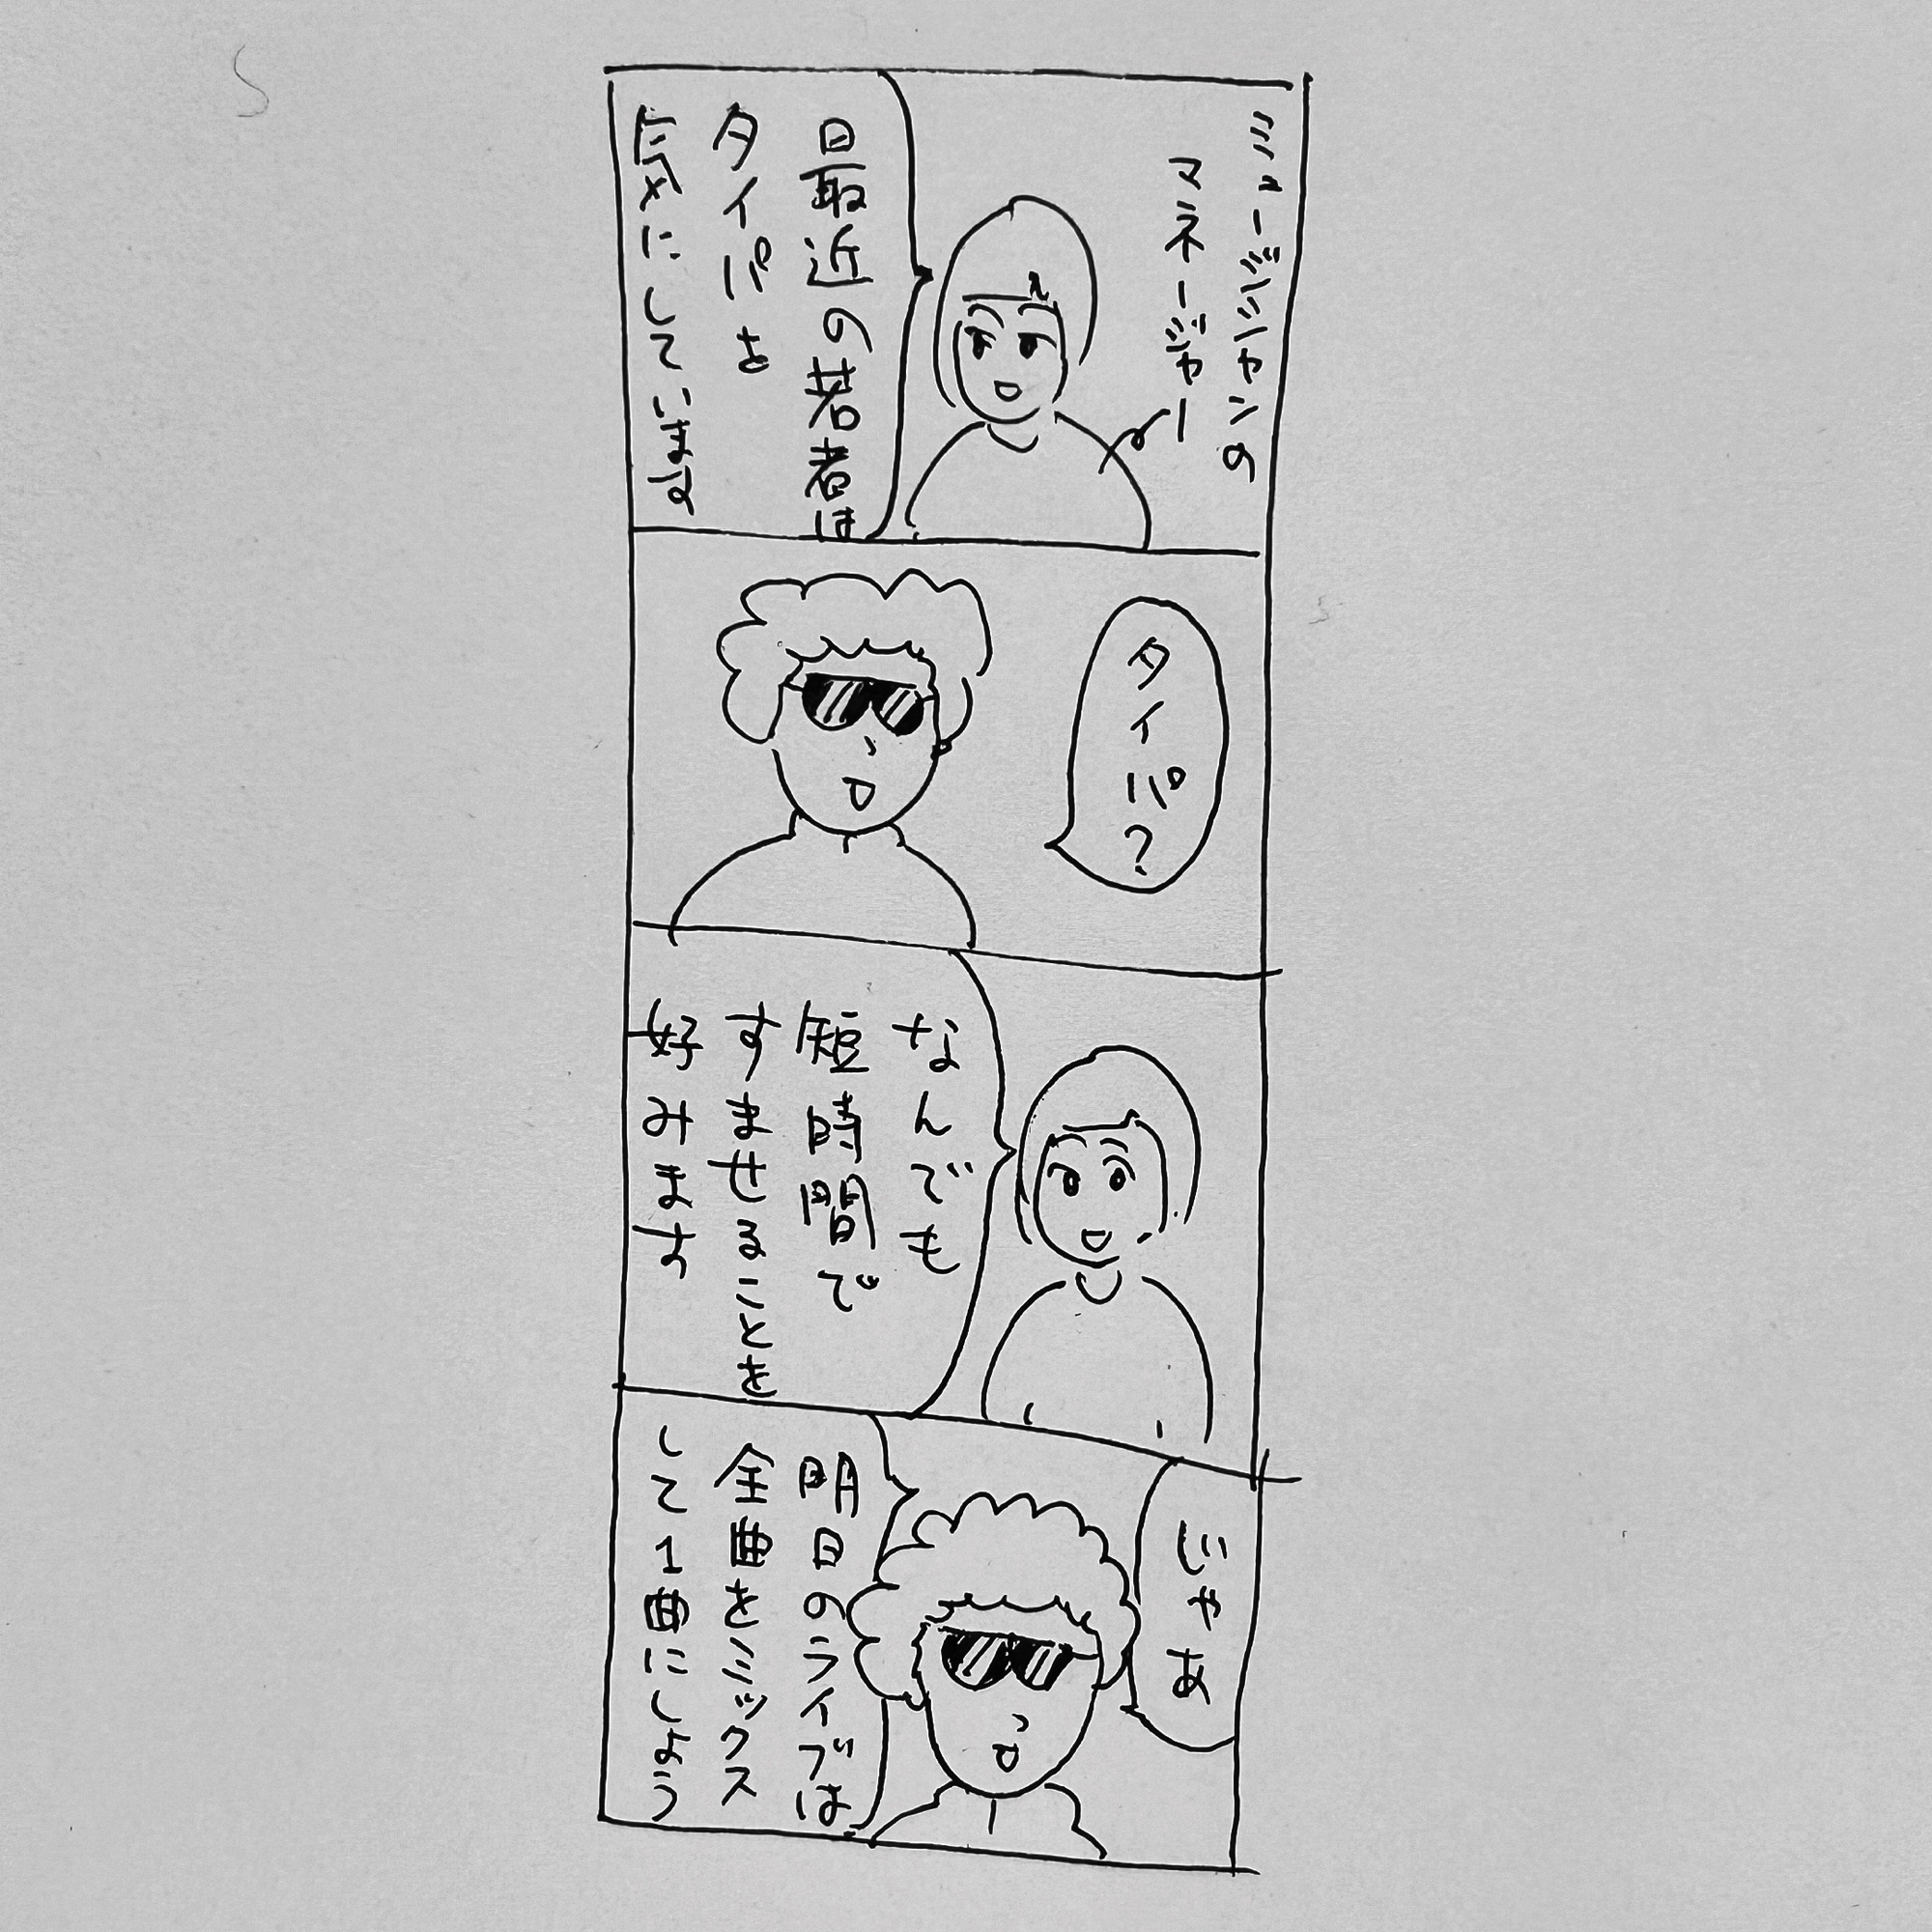 ミュージシャンの
マネージャー
最近の若者は
タイパを
気にしています
タイパ?
なんでも
短時間で
すませることを
好みます
じゃあ
明日のライブは
全曲をミックス
して1曲にしよう